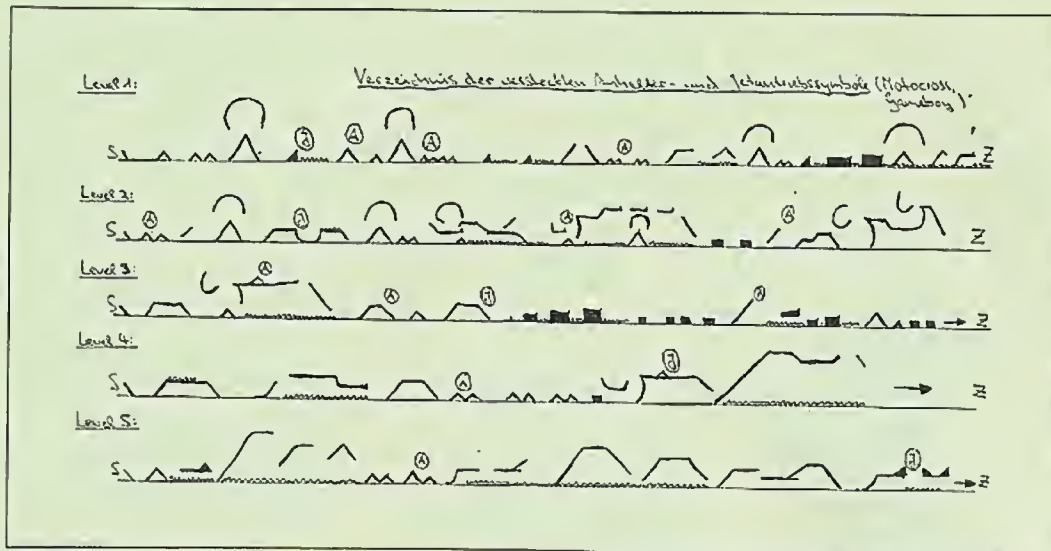 Level 1: Verzeichnis der versteckten Anhalter- und Jetantriebssymbole (Motocross,
Gameboy)
S J A A A Z
Level 2:
S A J A A Z
Level 3:
S A A J A Z
Level 4:
S A J Z
Level 5:
S A J Z